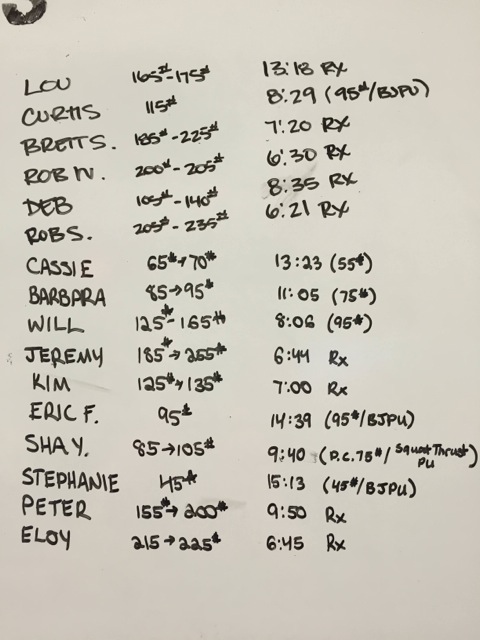 LOU 165#-175# 13:13 RX
CURTIS 115# 8:29 (95#/BJPU)
BRETT S. 185#-225# 7:20 RX
ROB W. 200#-205# 6:30 RX
DEB 105#-140# 8:35 RX
ROB S. 205#-235# 6:21 RX
CASSIE 65#→70# 13:23 (55#)
BARBARA 85→95# 11:05 (75#)
WILL 125#-165# 8:06 (95#)
JEREMY 185#→255# 6:44 Rx
KIM 125#→135# 7:00 Rx
ERIC F. 95# 14:39 (95#/BJPU)
SHAY. 85→105# 9:40 (P.C. 75#/Squat Thrust PU)
STEPHANIE 45# 15:13 (45#/BJPU)
PETER 155#→200# 9:50 Rx
ELOY 215→225# 6:45 Rx